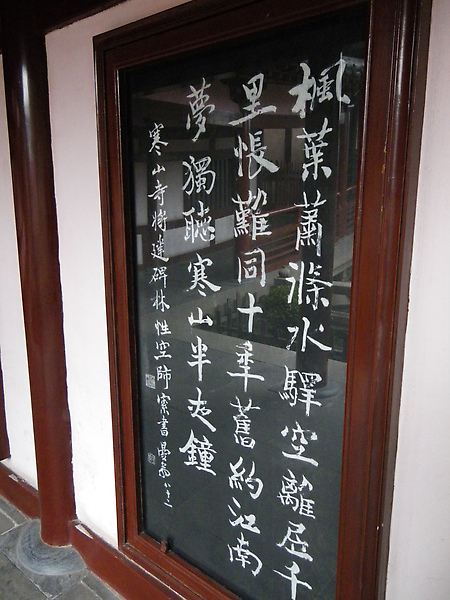 楓葉蕭滌水驛空離居千
里悵難同十年舊約江南
夢獨聽寒山半夜鐘
寒山寺將建碑林性空師索書